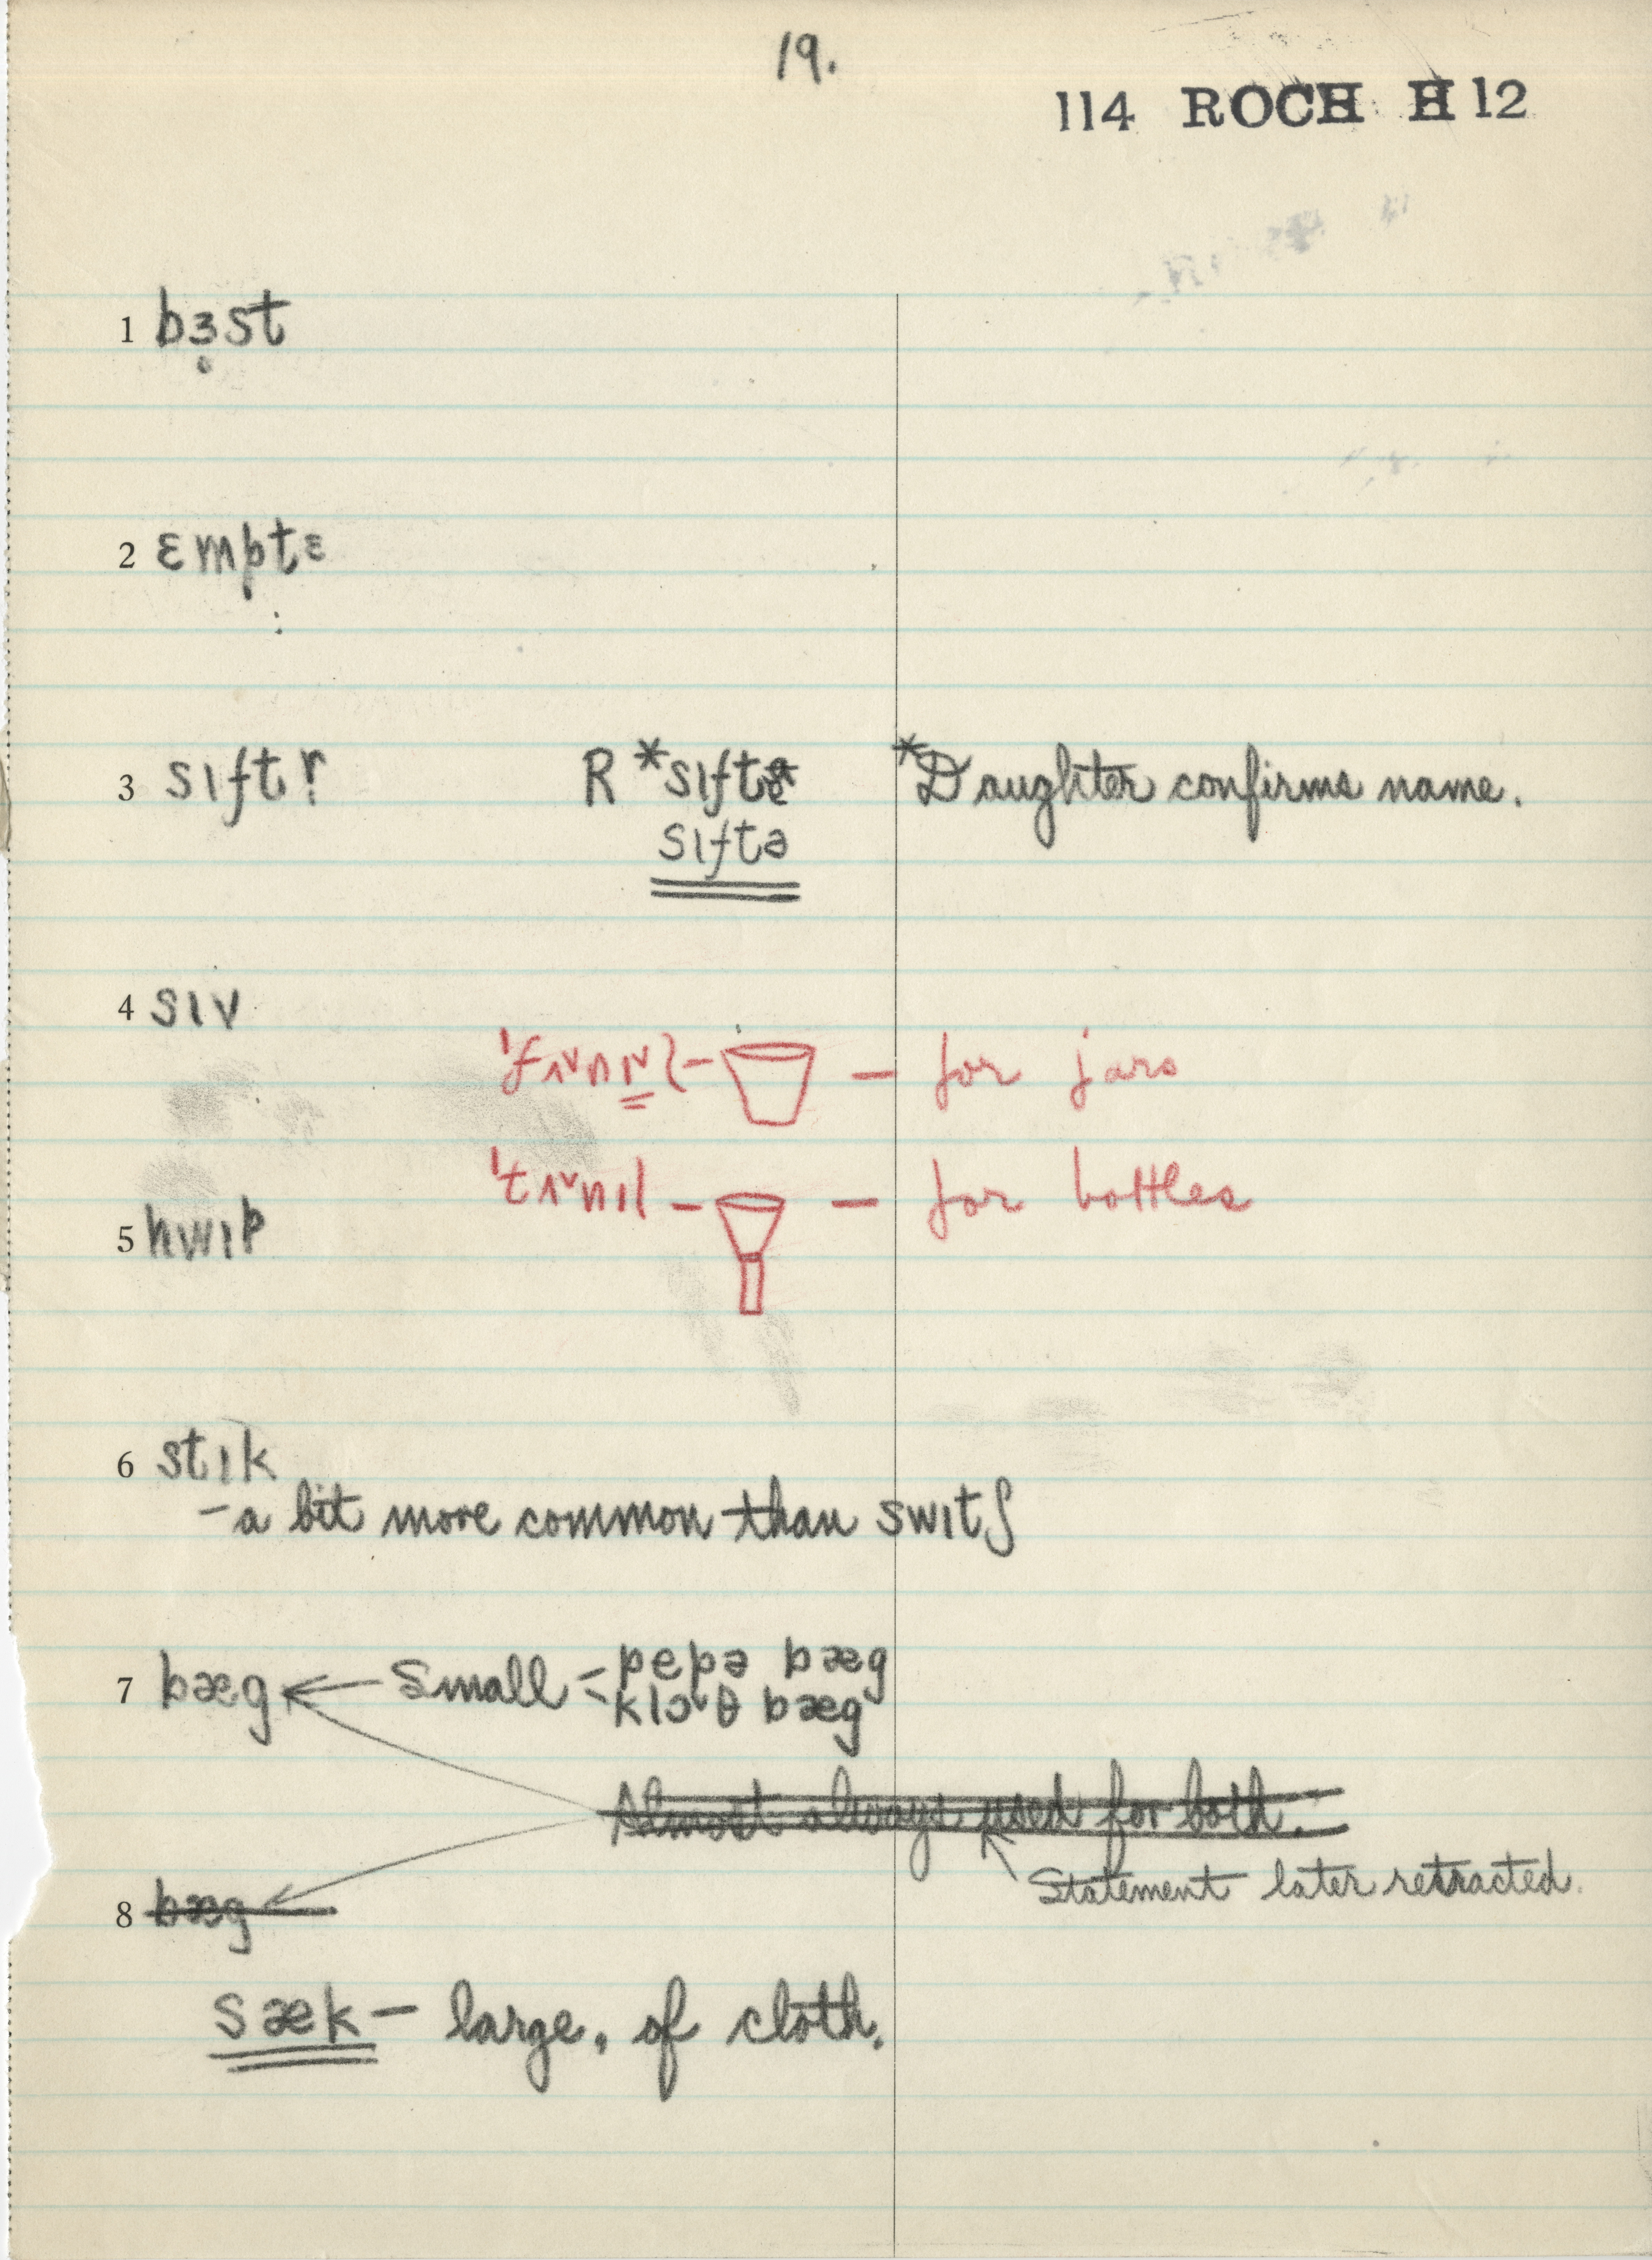 19.
114 ROCH H 12
1 bɜ̣st
2 ɛmptɛ
3 sɪftɚ R *sɪftɐ *Daughter confirms name.
sɪftə
4 sɪv
- for jars
- for bottles
5 hwɪp
6 stɪk
- a bit more common than swɪtʃ
7 bæg ← Small = pepə bæg
klɔˇθ bæg
Almost always used for both.
Statement later retracted.
8 bæg
sæk - large, of cloth.